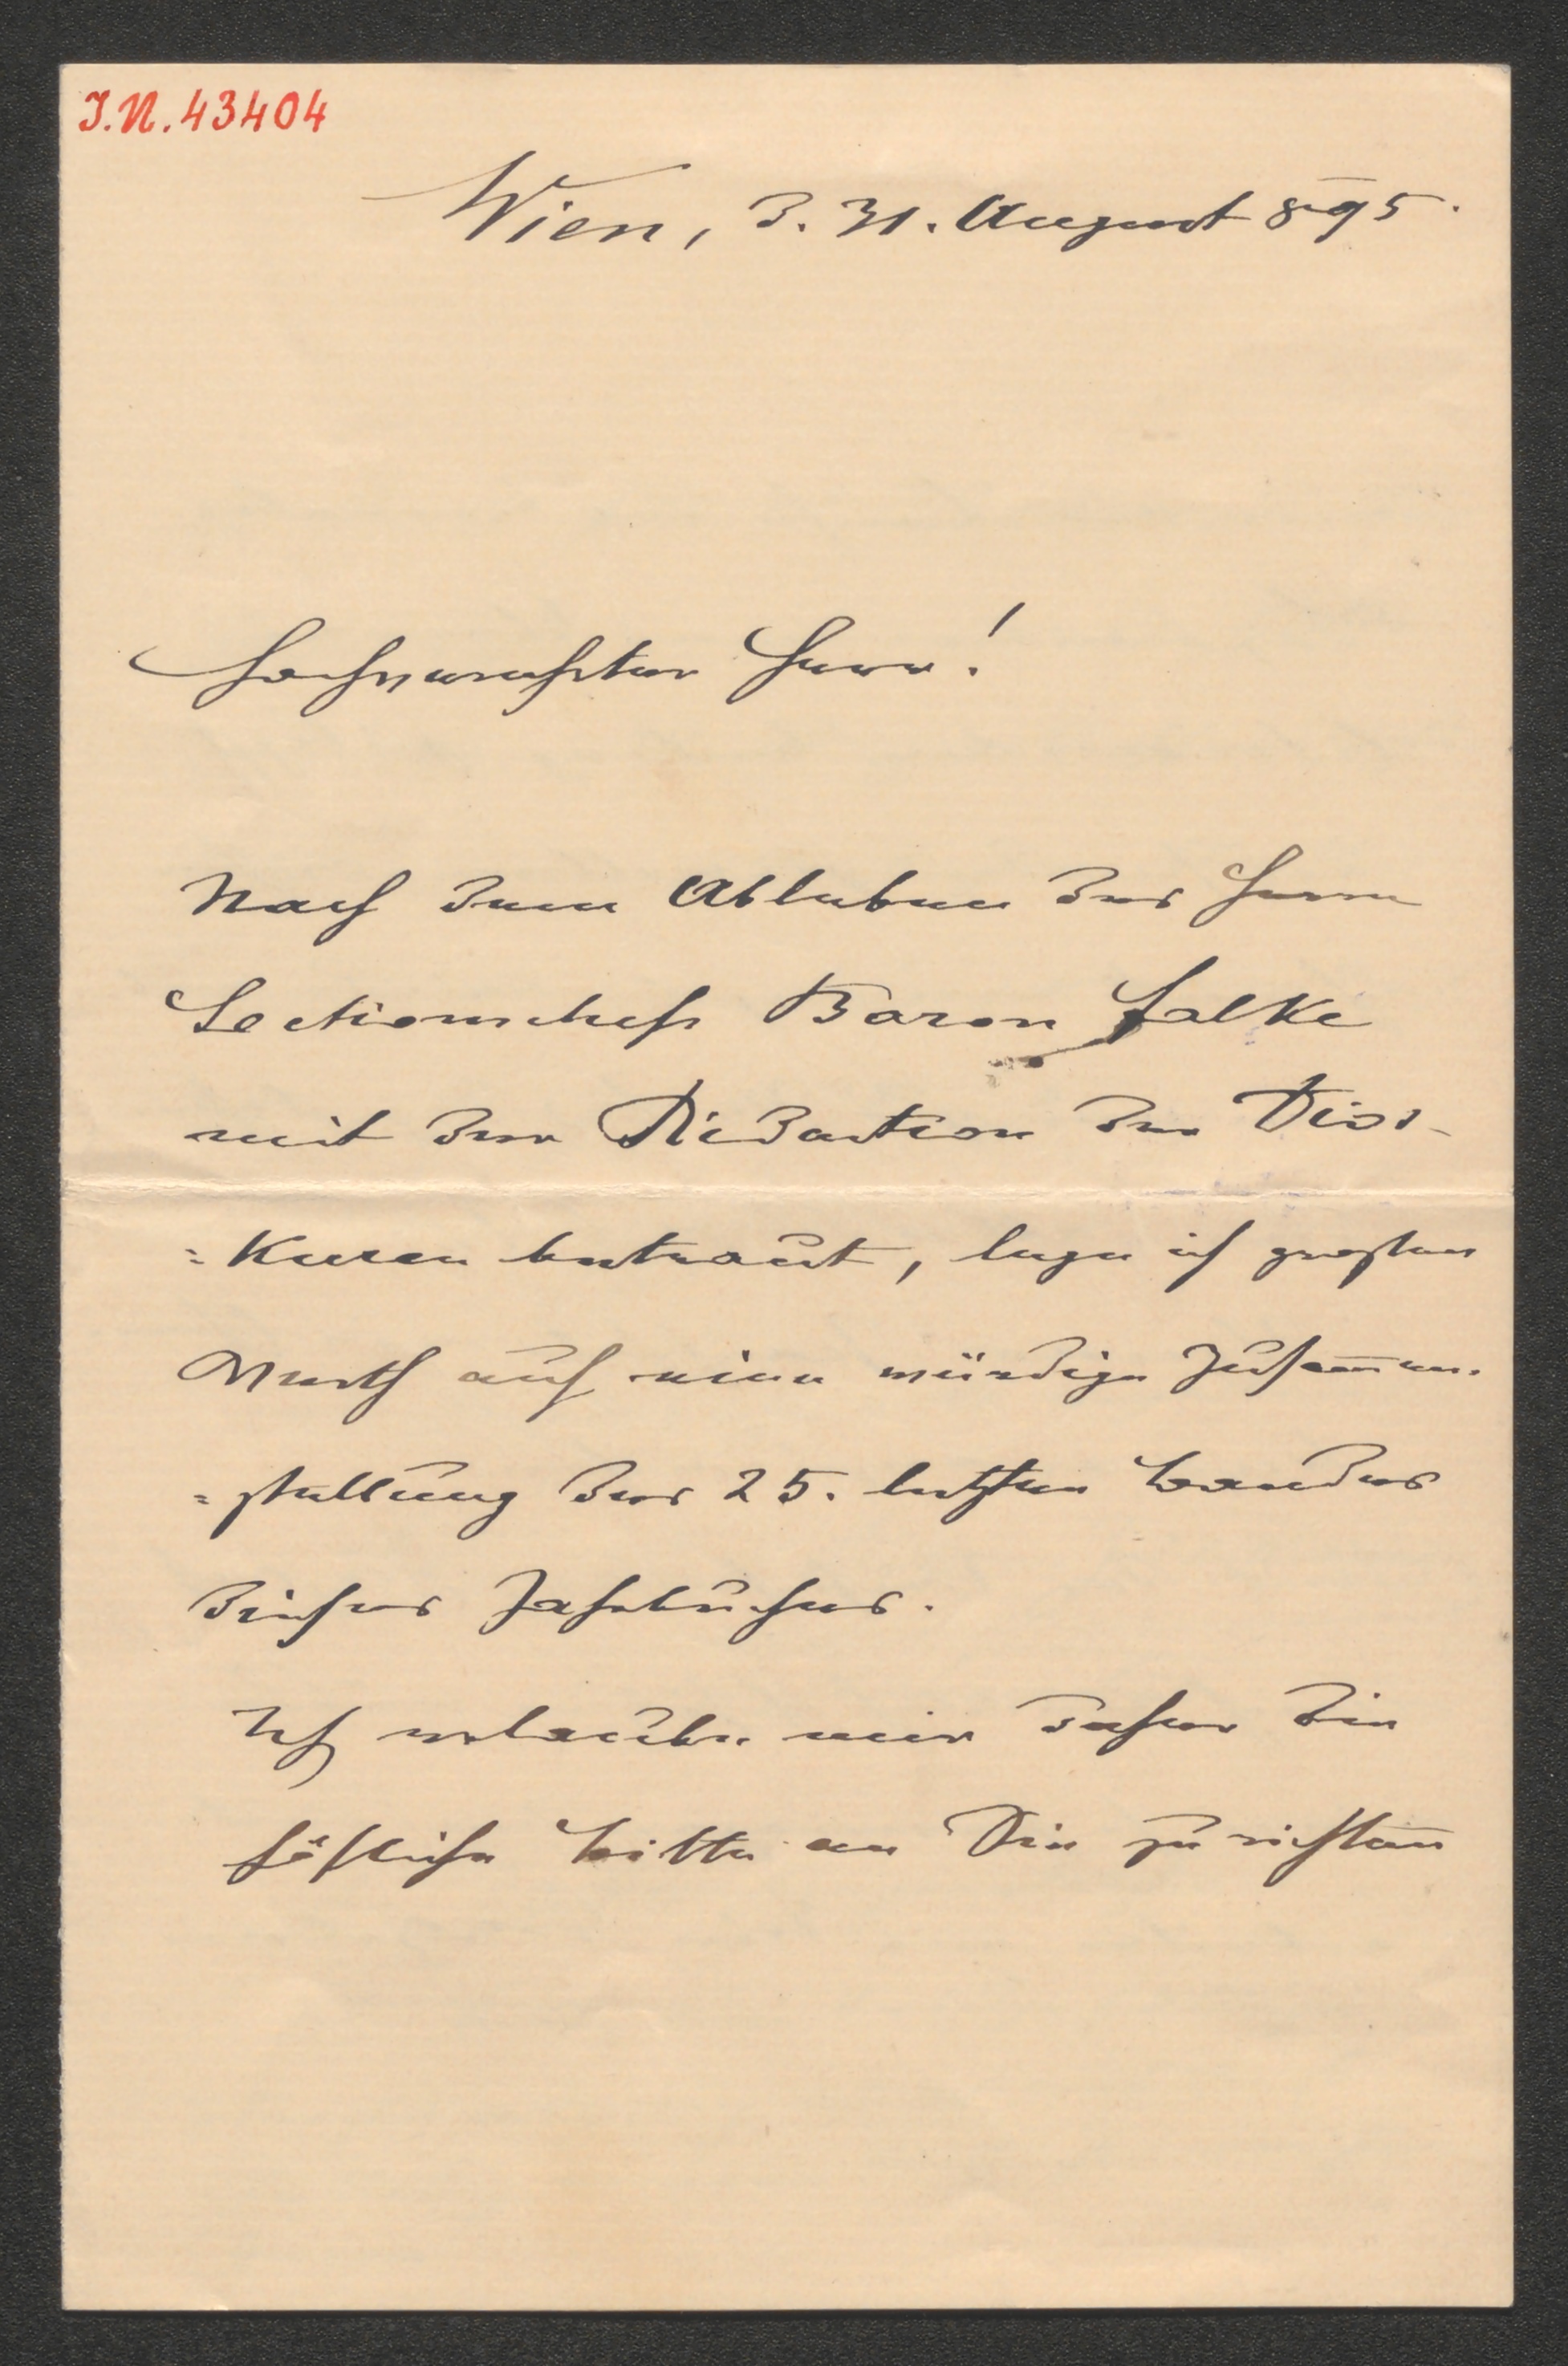 I.N. 43404
Wien, d. 31. August 895.
Hochverehrter Herr!
Nach dem Ableben des Herrn
Sectionschefs Baron Falke
mit der Redaction der Dios-
=kuren betraut, lege ich großen
Werth auf eine würdige Zusam̅en-
=stellung des 25. letzten Bandes
dieses Jahrbuches.
Ich erlaube mir daher die
höfliche Bitte an Sie zu richten